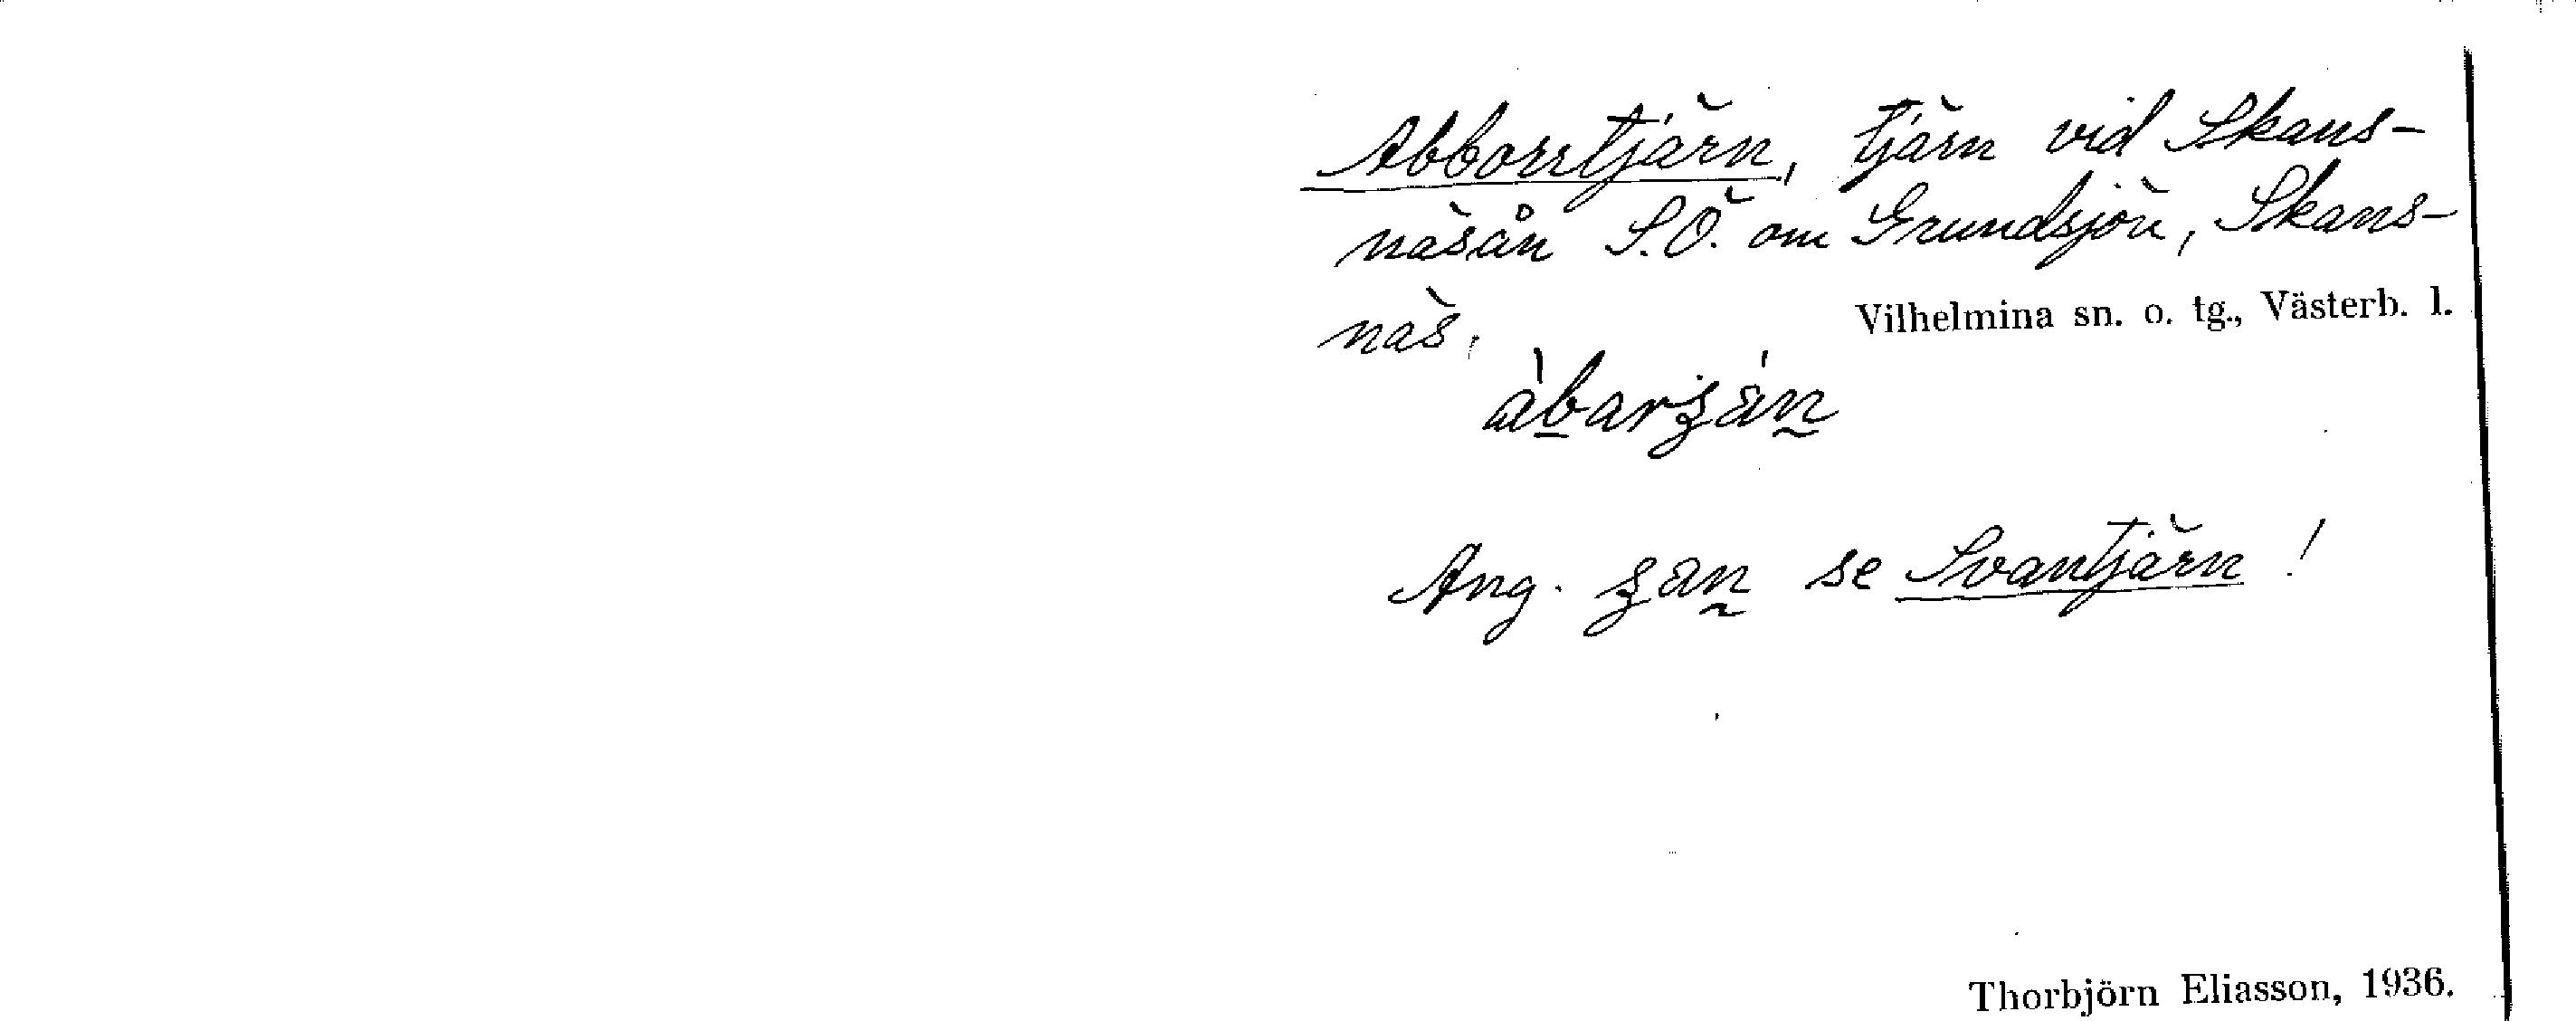 Abborrtjärn, tjärn vid Skans-
näsån S.Ö. om Grundsjön, Skans-
näs.
Vilhelmina sn. o. tg., Västerb. l.
àbarʒán̰
Ang. ʒan̰ se Svantjärn!
Thorbjörn Eliasson, 1936.